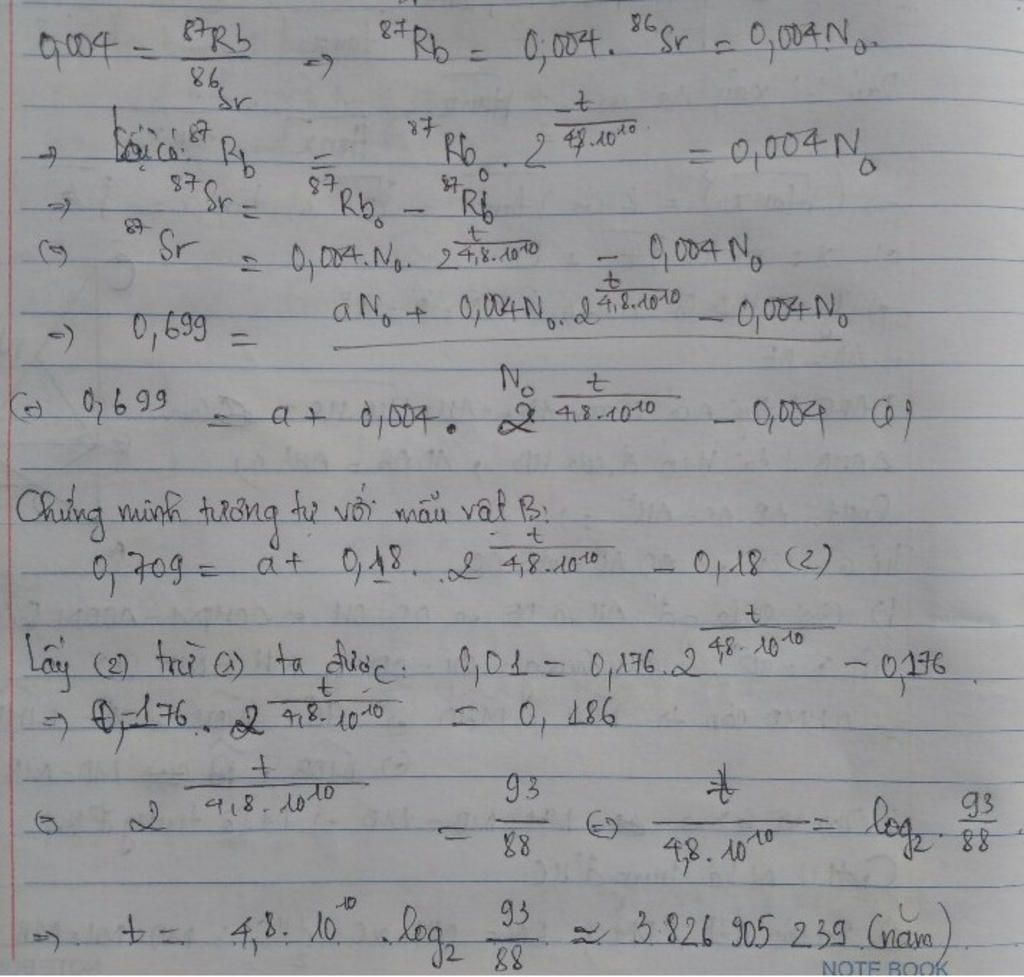 0,004 = ⁸⁷Rb/⁸⁶Sr ⇒ ⁸⁷Rb = 0,004 . ⁸⁶Sr = 0,004.N₀.
⇒ Lại có: ⁸⁷Rb = ⁸⁷Rb₀ . 2^(-t/4,8.10¹⁰) = 0,004N₀
⇒ ⁸⁷Sr = ⁸⁷Rb₀ - ⁸⁷Rb
⇔ ⁸⁷Sr = 0,004.N₀. 2^(t/4,8.10¹⁰) - 0,004N₀
⇒ 0,699 = (aN₀ + 0,004N₀.2^(t/4,8.10¹⁰) - 0,004N₀)/N₀
⇔ 0,699 = a + 0,004 . 2^(t/4,8.10¹⁰) - 0,004 (1)
Chứng minh tương tự với mẫu vật B:
0,709 = a + 0,18 . 2^(t/4,8.10¹⁰) - 0,18 (2)
Lấy (2) trừ (1) ta được: 0,01 = 0,176.2^(t/4,8.10¹⁰) - 0,176
⇒ 0,176 . 2^(t/4,8.10¹⁰) = 0,186
⇔ 2^(t/4,8.10¹⁰) = 93/88 ⇔ t/4,8.10¹⁰ = log₂ . 93/88
⇒ t = 4,8.10¹⁰ . log₂ 93/88 ≈ 3 826 905 239 (năm)
NOTE BOOK